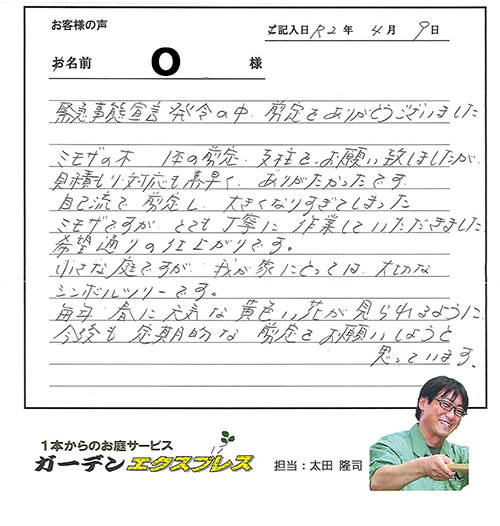 お客様の声
ご記入日 R2 年 4 月 9 日
お名前 O 様
緊急事態宣言発令の中、剪定をありがとうございました
ミモザの木 1本の剪定、支柱をお願い致しましたが、
見積もり・対応も素早く、ありがたかったです。
自己流で剪定し、大きくなりすぎてしまった
ミモザですが、とても丁寧に作業していただきました。
希望通りの仕上がりです。
小さな庭ですが、我が家にとっては、大切な
シンボルツリーです。
毎年、春に元気な黄色い花が見られるように
今後も定期的な剪定をお願いしようと
思っています。
1本からのお庭サービス
ガーデンエクスプレス
担当：太田 隆司